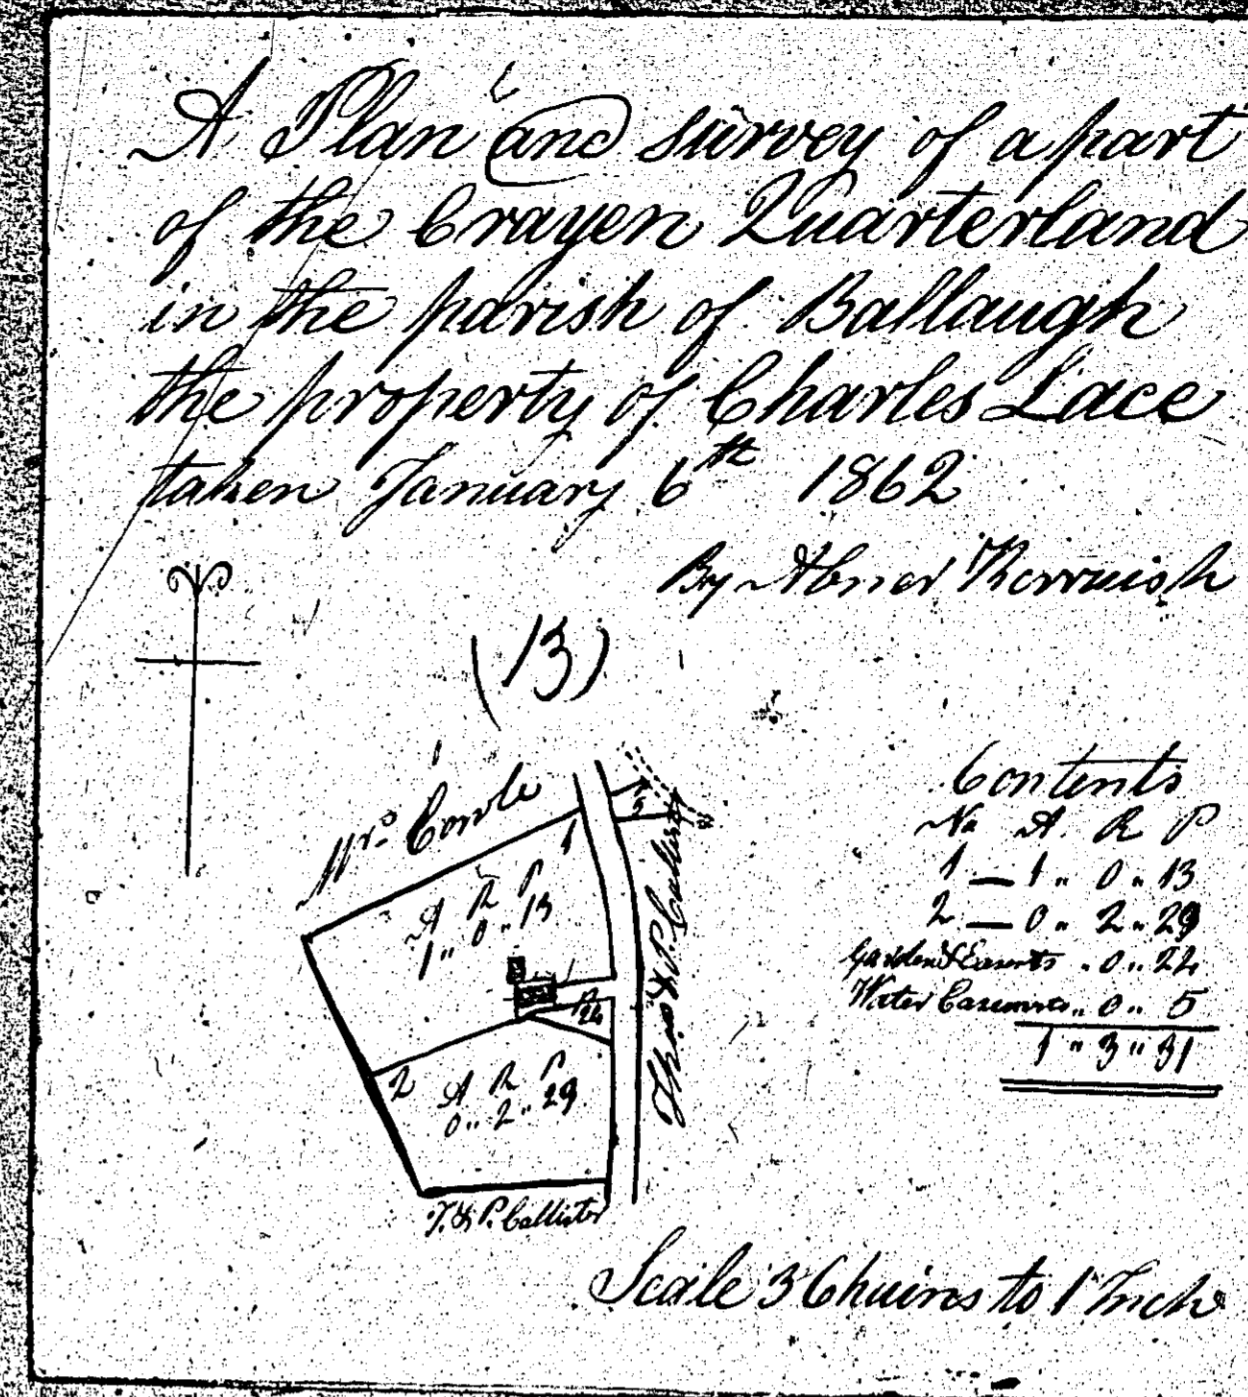 A Plan and survey of a part
of the Crayen Quarterland
in the parish of Ballaugh
the property of Charles Lace
taken January 6th 1862
By Abner Kerruish
(13)
Mrs Cowle
1
A R P
1 " 0 " 13
5
Thos & P. Callister
P
24
2
A R P
0 " 2 " 29
T. & P. Callister
Contents
No A. R P
1 — 1 " 0 " 13
2 — 0 " 2 " 29
Garden & Easmts " 0 " 24
Water Easments " 0 " 5
1 " 3 " 31
Scale 3 Chains to 1 Inch